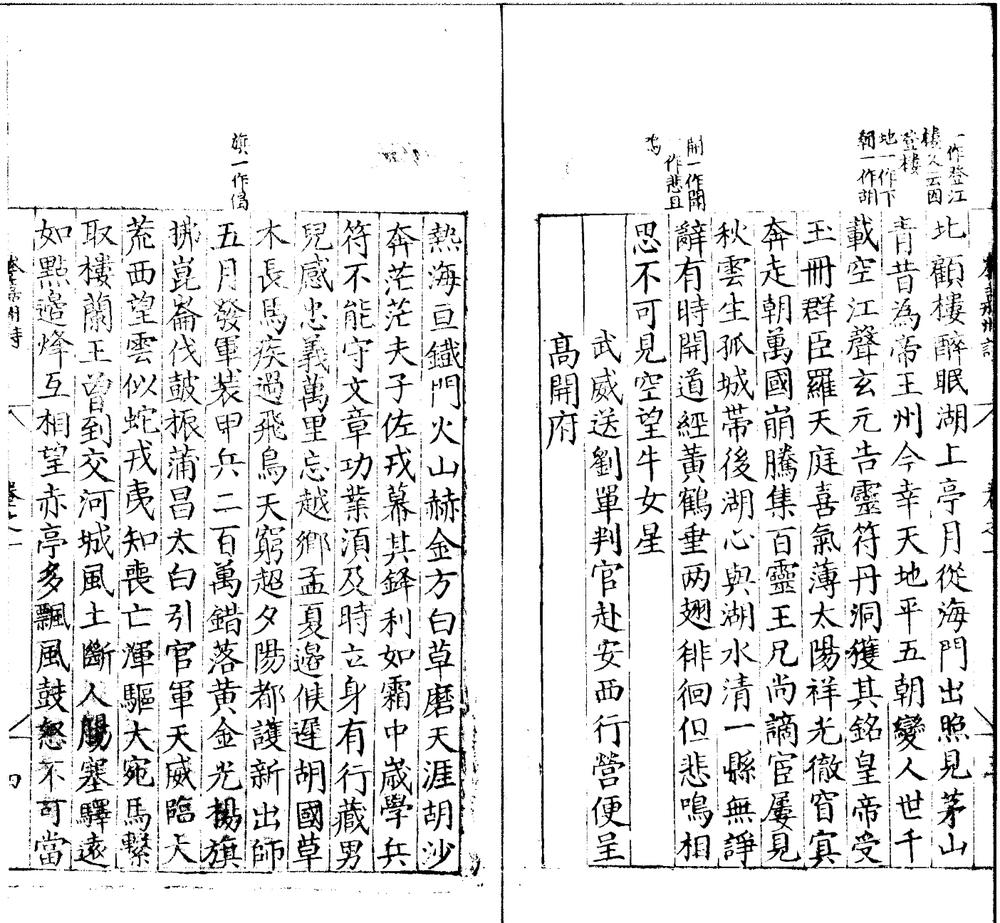 一作登江
樓又云因
登樓
地一作下
朝一作胡
開一作聞
一作悲且
鳴
北顧樓醉眠湖上亭月從海門出照見茅山
青昔為帝王州今幸天地平五朝變人世千
載空江聲玄元告靈符丹洞獲其銘皇帝受
玉冊群臣羅天庭喜氣薄太陽祥光徹窅冥
奔走朝萬國崩騰集百靈王兄尚謫宦屢見
秋雲生孤城帶後湖心與湖水清一縣無諍
辭有時開道經黃鶴垂兩翅徘徊但悲鳴相
思不可見空望牛女星
武威送劉單判官赴安西行營便呈
高開府
旗一作偈
熱海亘鐵門火山赫金方白草磨天涯胡沙
奔茫茫夫子佐戎幕其鋒利如霜中歲學兵
符不能守文章功業須及時立身有行藏男
兒感忠義萬里忘越鄉孟夏邊候遲胡國草
木長馬疾過飛鳥天窮超夕陽都護新出師
五月發軍裝甲兵二百萬錯落黃金光揚旗
拂崑崙伐鼓振蒲昌太白引官軍天威臨大
荒西望雲似蛇戎夷知喪亡渾驅大宛馬繫
取樓蘭王曾到交河城風土斷人腸塞驛遠
如點邊烽互相望赤亭多飄風鼓怒不可當
卷之一
四